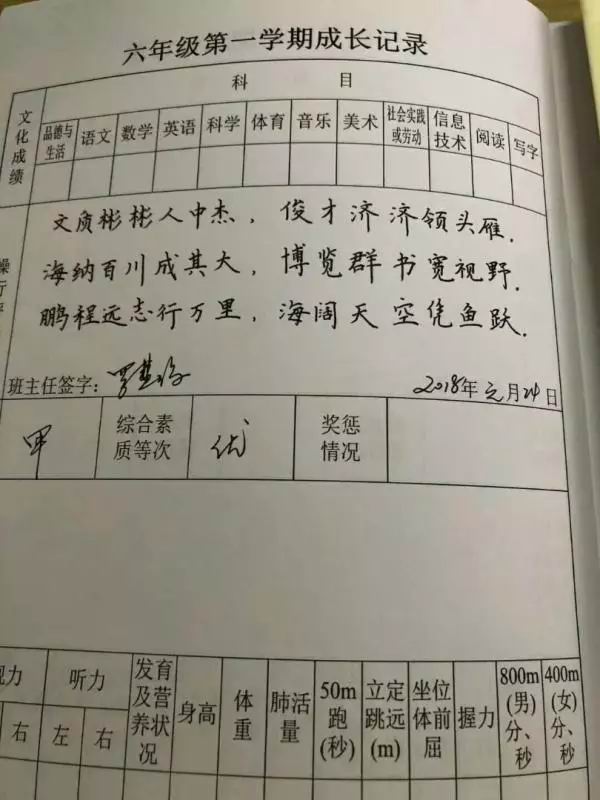 六年级第一学期成长记录
科 目
文化成绩
品德与生活 语文 数学 英语 科学 体育 音乐 美术 社会实践或劳动 信息技术 阅读 写字
文质彬彬人中杰，俊才济济领头雁.
海纳百川成其大，博览群书宽视野.
鹏程远志行万里，海阔天空凭鱼跃.
操行
班主任签字：
2018年元月24日
甲 综合素质等次 优 奖惩情况
力 听力 发育及营养状况 身高 体重 肺活量 50m跑(秒) 立定跳远(m) 坐位体前屈 握力 800m(男)分、秒 400m(女)分、秒
右 左 右